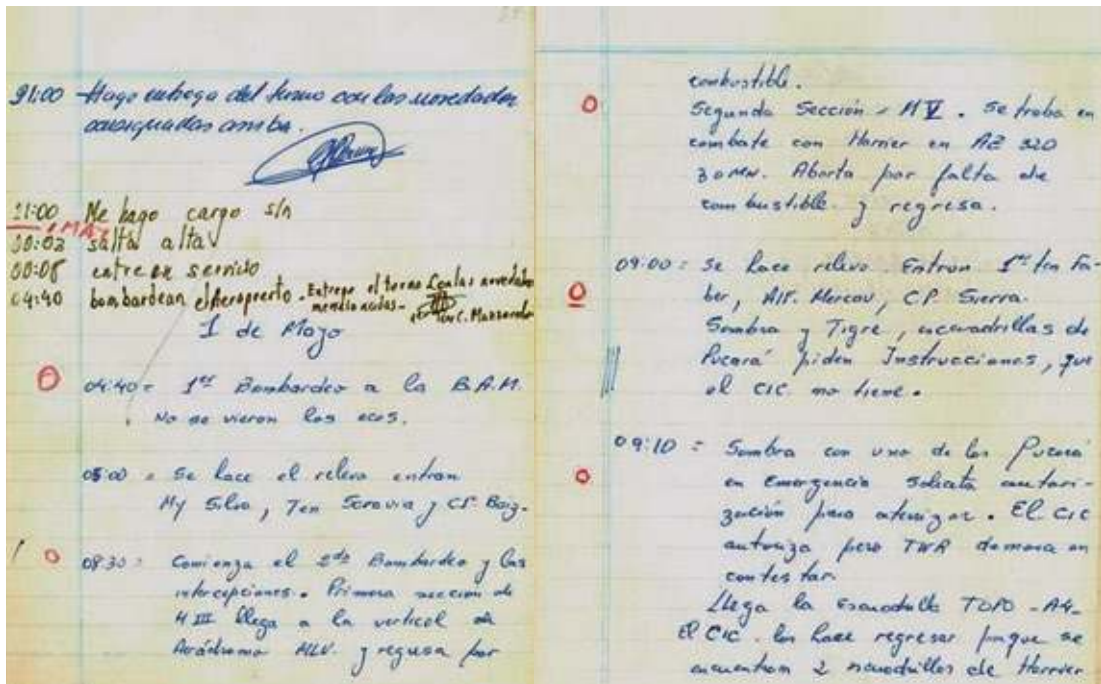 21:00 Hago entrega del turno con las novedades
consignadas arriba.
21:00 Me hago cargo s/n
1 MAY
00:02 salta alta
00:08 entre en servicio
04:40 bombardean el Aeropuerto. Entrego el turno con las novedades
1 de Mayo
04:40 = 1er Bombardeo a la B.A.M.
No se vieron los ecos.
05:00 = Se hace el relevo entran
My Silva, Ten Saravia y CP
08:30 = Comienza el 2do Bombardeo y las
intercepciones. Primera sección de
M III llega a la vertical
Aeródromo MLV. y regresa por
combustible.
Segunda Sección M V. se traba en
combate con Harrier en AZ 320
30 MN. Aborta por falta de
combustible y regresa.
09:00 = Se hace relevo. Entran 1er ten Fa-
ber, Alf. Marcou, CP Sierra.
Sombra y Tigre, escuadrillas de
Pucará piden Instrucciones, que
el CIC. no tiene.
09:10 = Sombra con uno de los Pucará
en Emergencia solicita autori-
zación para aterrizar. El CIC
autoriza pero TWR demora en
contestar.
Llega la escuadrilla TOPO - A4-
El CIC. los hace regresar porque se
encuentran 2 escuadrillas de Harrier